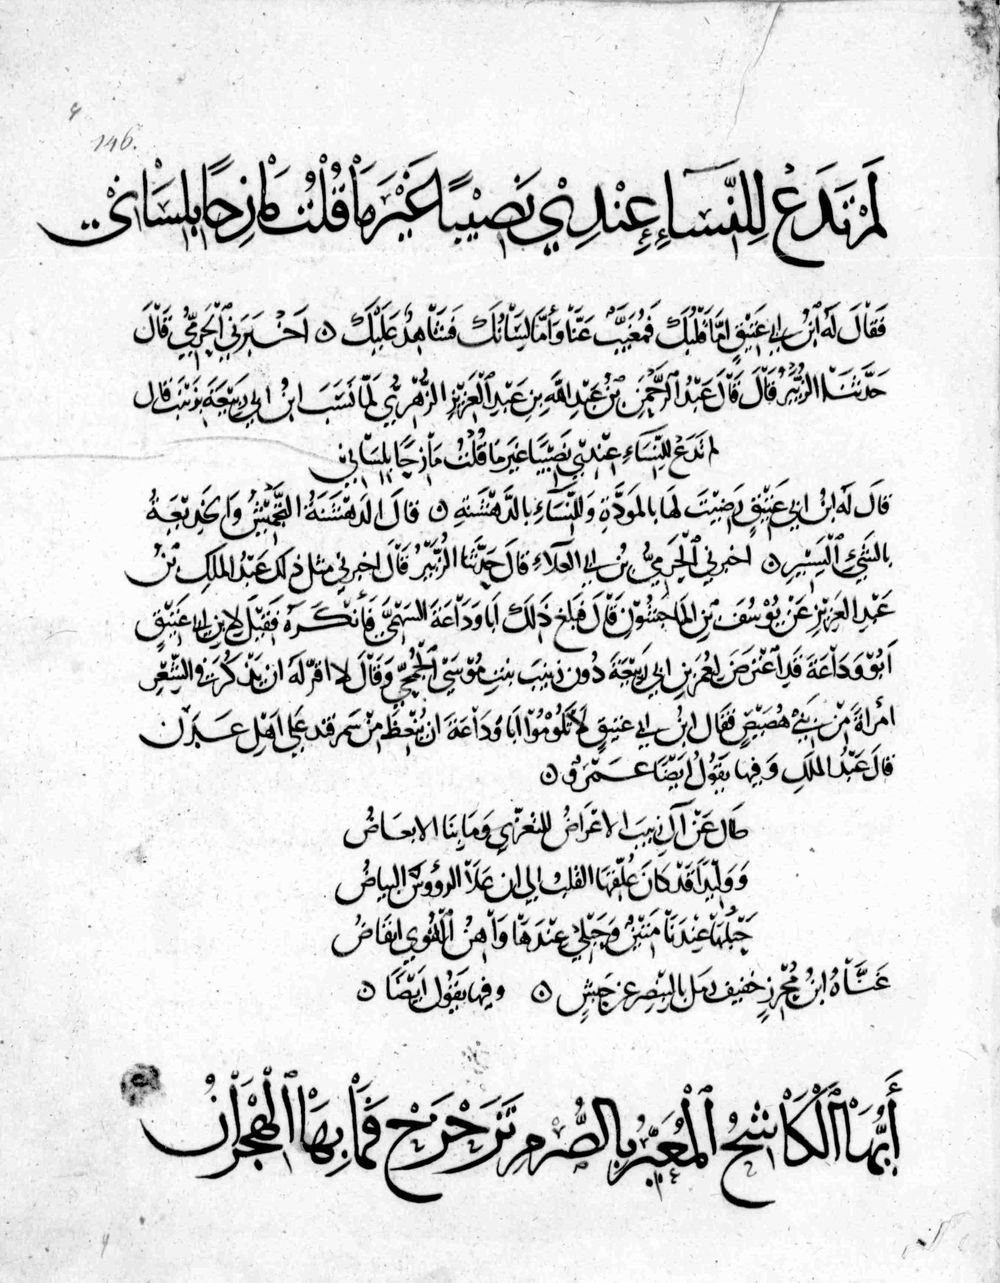 146.
لَمْ تَدَعْ لِلنِّسَاءِ عِنْدِي نَصِيْبًا غَيْرَ مَا قُلْتُ مَازِحًا بِلِسَانِيْ
فَقَالَ لَهُ ابْنُ ابي عَتِيْقٍ امّا قَلْبُكَ فَمُغَيَّبٌ عَنَّا وَأَمَّا لِسَانُكَ فَشَاهِدٌ عَلَيْكَ ۝ اَخْبَرَنِي الْحَرَمِيُّ قَالَ
حَدَّثَنَا الزُّبَيْرُ قَالَ قَالَ عَبْدُ الرَّحْمٰنِ بْنُ عَبْدِ اللَّهِ بنِ عَبْدِ الْعَزِيْزِ الزُّهْرِيُّ لَمّا نَسَبَ ابنُ ابي رَبِيْعَةَ بِزَيْنَبَ قال
لم تَدَعْ لِلنِّسَاءِ عِنْدِيْ نَصِيْبًا غيرَ مَا قُلْتُ مَازِحًا بِلِسَانِي
قَالَ لَهُ ابنُ ابي عَتِيْقٍ رَضِيْتَ لهَا بِالمَوَدَّةِ وَلِلنِّسَاءِ بالدَّهْشَةِ ۝ قالَ الدَهْشَةُ التَّجْمِيْشُ وَالخَدِيْعَةُ
بالشَيْءِ اليَسِيْرِ ۝ اخبرني الْحَرَمِيُّ بْنُ ابي العَلاَءِ قالَ حَدَّثَنَا الزُّبَيْرُ قَالَ اخبرني مثل ذلك عَبْدُ المَلَكِ بْنُ
عَبْدِ العَزِيزِ عَنْ يُوْسُفَ بْنِ المَاجشُوْنِ قَالَ فبلغ ذَلكَ اَبَا وَدَاعَةَ السَهْمِيَّ فَأَنْكَرَهُ فَقيْلَ لابنِ ابي عَتِيْقٍ
اَبُوْ وَدَاعَةَ قَدِ اعْتَرَضَ لِعُمَرَ بنِ ابي رَبِيْعَةَ دُونَ زينبَ بنتِ مُوْسَى الْجُمَحِيِّ وَقَالَ لا اقرّ لَهُ ان يَذْكُرَ في الشِّعْرِ
امْرَأةً مِنْ بَنِيْ هُصَيْصٍ فَقَال ابنُ ابي عَتيق لا تَلُوْمُوْا اَبَا وُدَاعَةَ ان يُنْعِظَ مِنْ سَمرقند على اَهْلِ عَدَنْ
قالَ عَبْدُ المَلكِ وَفيها يقُوْلُ ايضًا عُمَرُ ۝
طَالَ عَنْ آلِ زينبَ الاِعْرَاضُ للتعزّي وَمَا بِنَا الابعَاضُ
وَوَلِيْدًا قَدْ كَانَ عُلِّقَهَا القَلبُ الى ان عَلاَ الرؤوسَ البَيَاضُ
حَبْلُهَا عِنْدَنَا مَتِيْنٌ وَحَبْلِيْ عِنْدَهَا وَاهِنُ القُوَى انقَاضُ
غَنَّاهُ ابنُ مُحْرِزٍ خفيف رمل بالبنصر عن حَبشٍ ۝ وفيها يَقُوْلُ ايضًا ۝
أَيُّهَا الْكَاشِحُ الْمُعَيِّرُ بِالصُّرْمِ تَزَحْزَحْ فَمَا بِهَا الْهِجْرَانُ